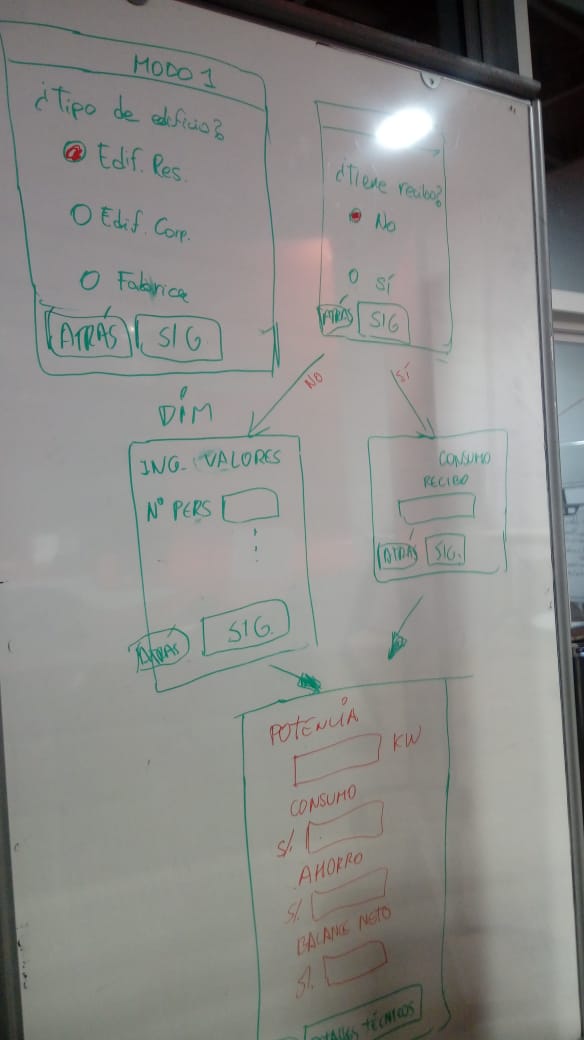 MODO 1
¿Tipo de edificio?
Edif. Res.
Edif. Corp.
Fabrica
ATRÁS SIG
¿Tiene recibo?
No
Sí
ATRÁS SIG
NO
SÍ
DIM
ING. VALORES
N° PERS
ATRÁS SIG.
CONSUMO
RECIBO
ATRÁS SIG.
POTENCIA
KW
CONSUMO
S/.
AHORRO
S/.
BALANCE NETO
S/.
DETALLES TÉCNICOS